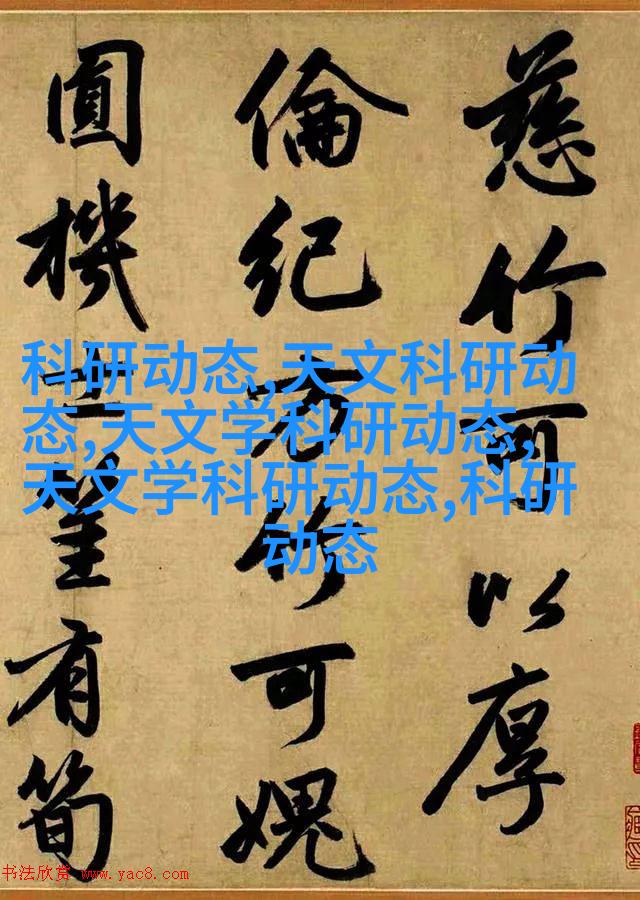 慈竹可以厚
倫紀方竹可媿
圓機有筍
科研动态,天文科研动
态,天文学科研动态,
天文学科研动态,科研
动态
书法欣赏 www.yac8.com